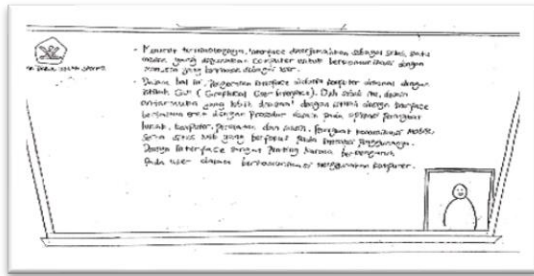 - Menurut terminologinya, interface diterjemahkan sebagai salah satu
media yang digunakan computer untuk berkomunikasi dengan
manusia yang berperan sebagai user.
- Dalam hal ini, pengertian interface didunia komputer dikenal dengan
istilah GUI (Graphical User Interface). Oleh sebab itu, desain
antarmuka yang lebih dikenal dengan istilah design interface
berhubungan erat dengan prosedur desain pada aplikasi perangkat
lunak, komputer, peralatan dan mesin, perangkat komunikasi mobile,
serta situs web yang berfokus pada interaksi penggunanya.
Design interface sangat penting karena berpengaruh
pada user dalam berkomunikasi menggunakan komputer.